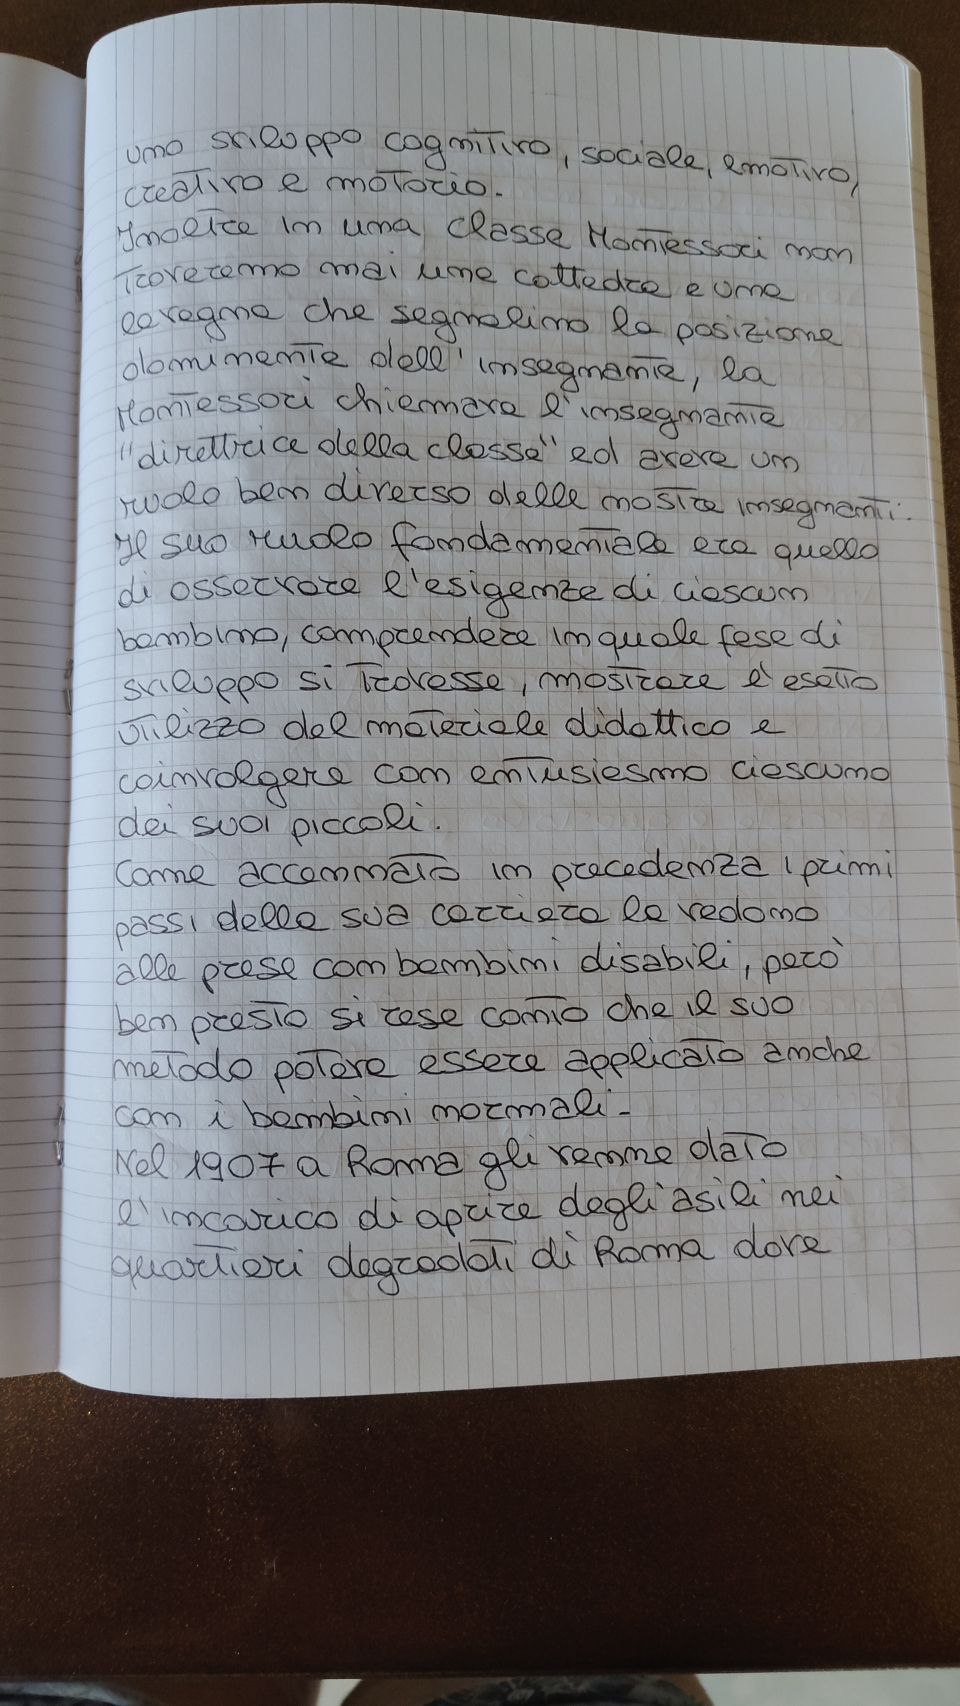 uno sviluppo cognitivo, sociale, emotivo,
creativo e motorio.
Inoltre in una classe Montessori non
troveremo mai una cattedra e una
lavagna che segnalino la posizione
dominante dell'insegnante, la
Montessori chiamava l'insegnante
"direttrice della classe" ed aveva un
ruolo ben diverso dalle nostre insegnanti.
Il suo ruolo fondamentale era quello
di osservare l'esigenze di ciascun
bambino, comprendere in quale fase di
sviluppo si trovasse, mostrare l'esatto
utilizzo del materiale didattico e
coinvolgere con entusiasmo ciascuno
dei suoi piccoli.
Come accennato in precedenza i primi
passi della sua carriera la vedono
alle prese con bambini disabili, però
ben presto si rese conto che il suo
metodo poteva essere applicato anche
con i bambini normali.
Nel 1907 a Roma gli venne dato
l'incarico di aprire degli asili nei
quartieri degradati di Roma dove